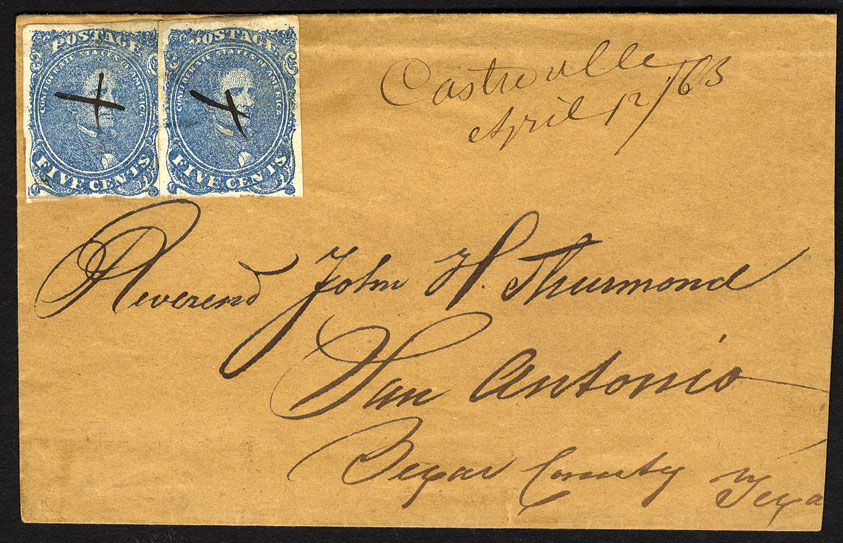 POSTAGE
CONFEDERATE STATES OF AMERICA
FIVE CENTS
POSTAGE
CONFEDERATE STATES OF AMERICA
FIVE CENTS
Castroville
April 12/63
Reverend John H. Thurmond
San Antonio
Bexar County Texa